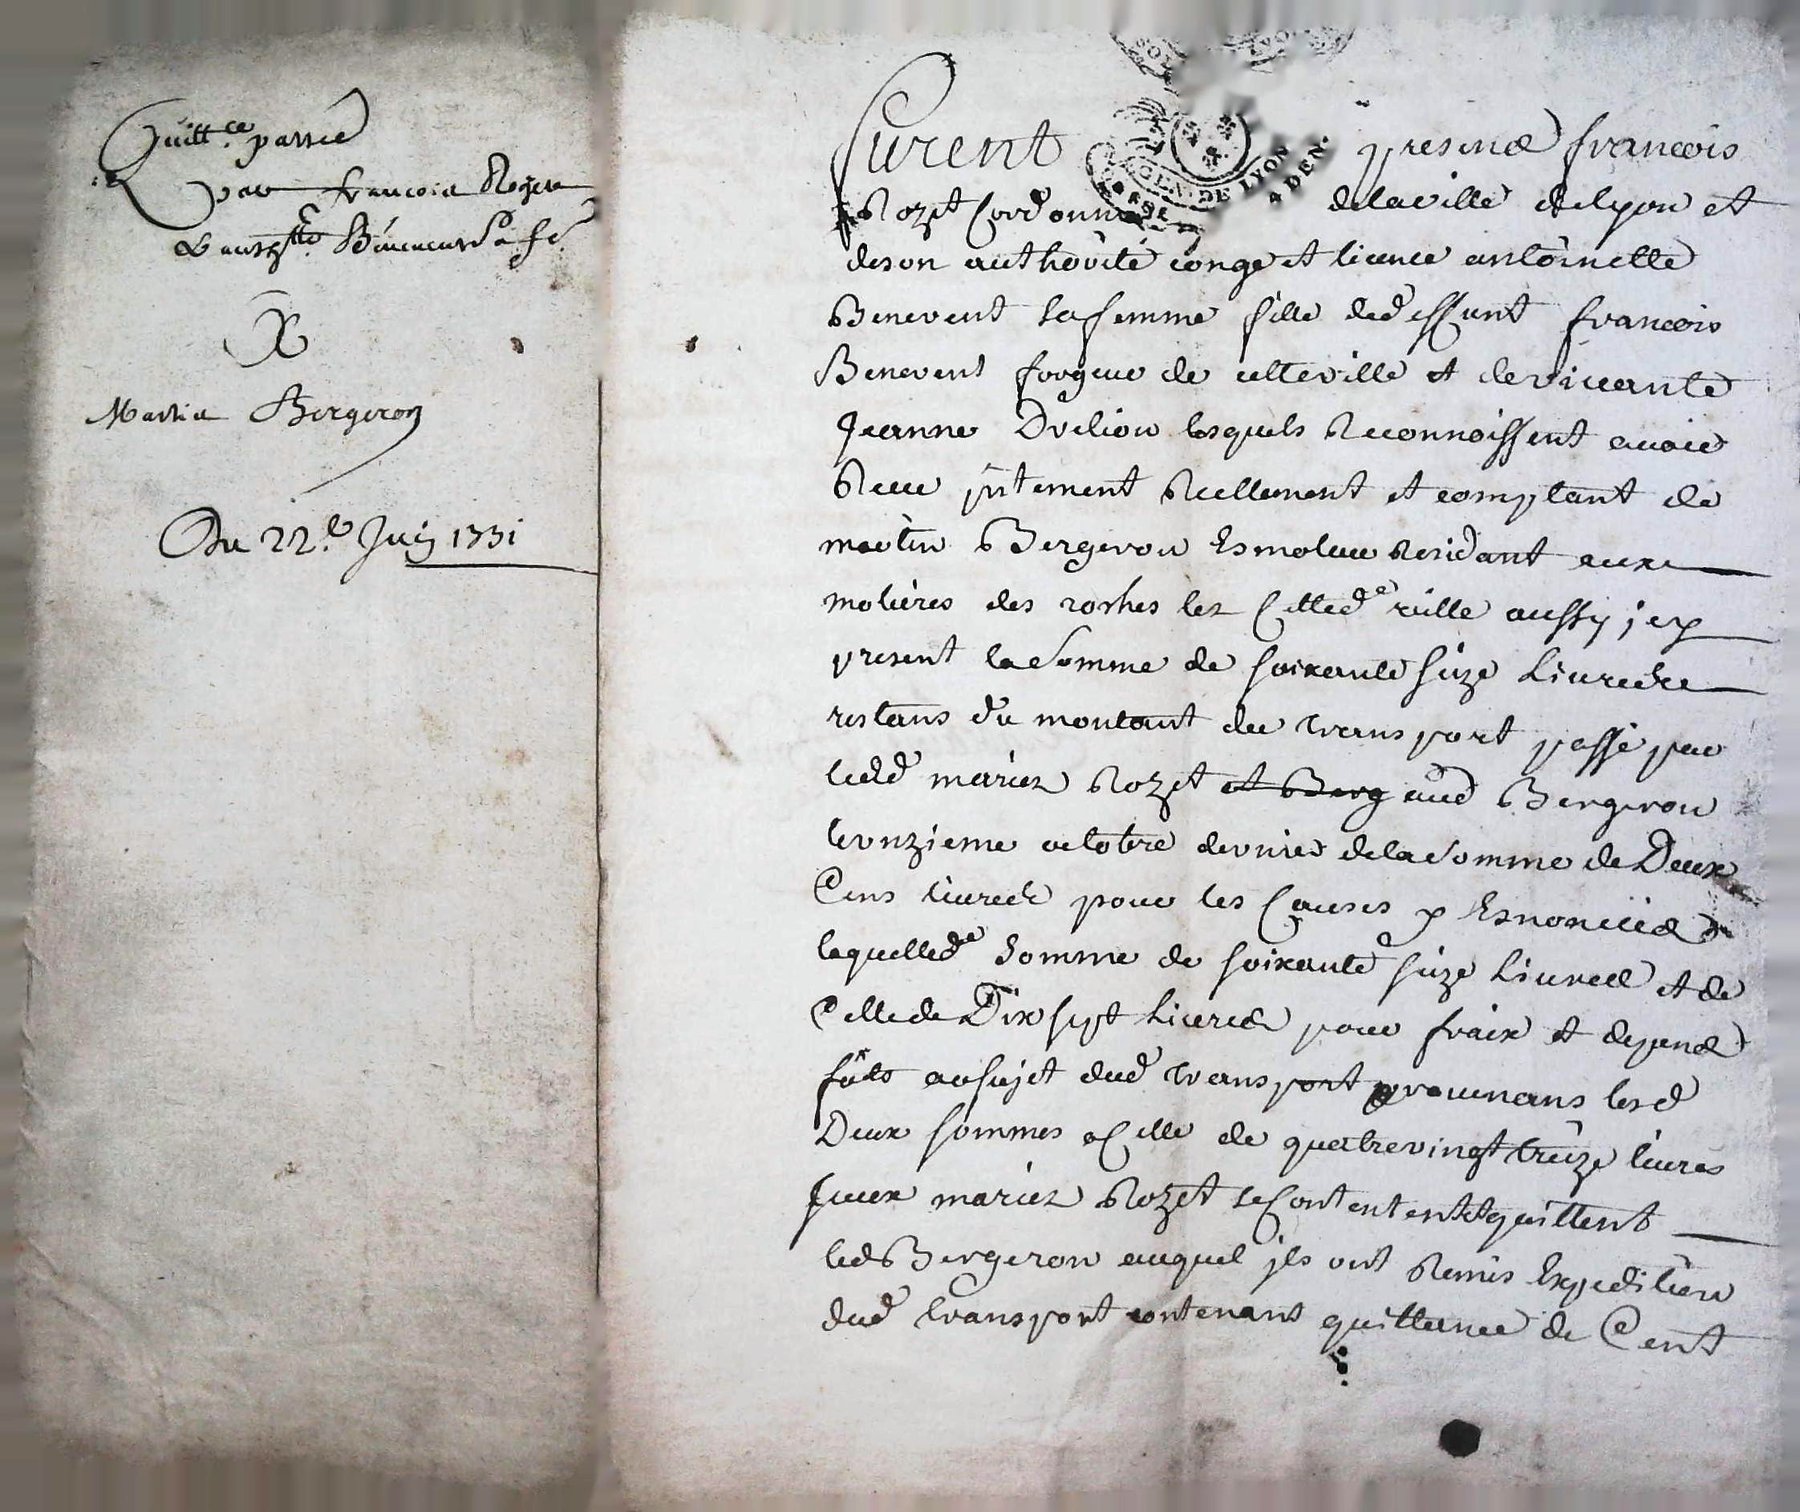 Quitt.ce passée
par francois Rozet
& ant.tte Benevent Sa fe.
X
Martin Bergeron
Du 22.e Juin 1731
GEN. DE LYON
DEN.
furent presens francois
Rozet Cordonnie delaville delyon et
deson authorité conge et licence antoinette
Benevent sa femme fille dedeffunt francois
Benevent forgeur de cetteville et devivante
Jeanne lesquels Reconnoissent avoir
Receu jntement Reellement et comptant de
martin Bergeron Esmoleur Residant aux
molieres des roches lez Cetted.e ville aussy jcy
present la Somme de soixante seize Livres
restans du montant du transport passé par
lesd maries Rozet et Berg aud Bergeron
leonzieme octobre dernier delaSomme de Deux
Cens livres pour les Causes y Esnoncées
laquelled.e Somme de soixante seize Livres et de
Celle de Dix sept Livres pour fraix et depens
faits ausujet dud transport provenans lesd
Deux sommes a Celle de quatrevingt treize livres
Jceux maries Rozet se Contentent et quittent
led Bergeron auquel jls ont Remis Expedition
dud transport contenant quittance de Cent